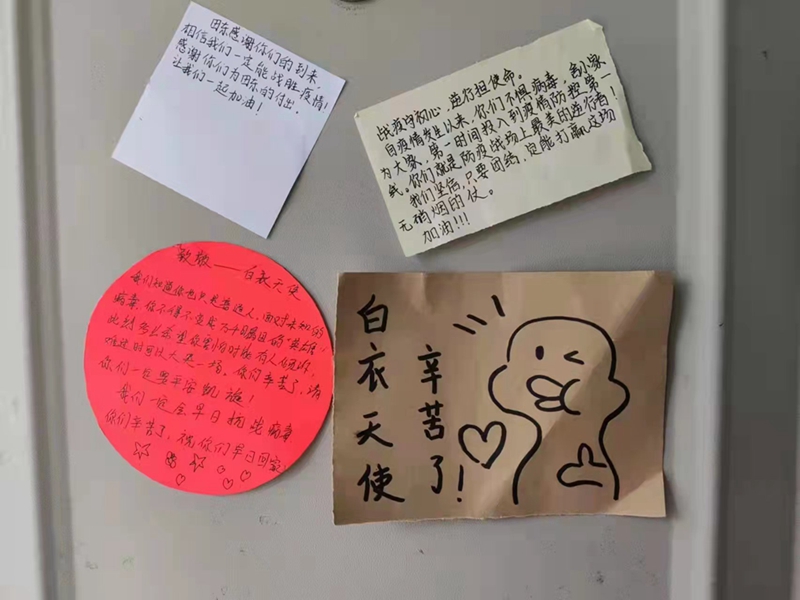 田东感谢你们的到来,
相信我们一定能战胜疫情!
感谢你们为田东的付出.
让我们一起加油!
战疫守初心,逆行担使命。
自疫情发生以来,你们不惧病毒,舍小家
为大家,第一时间投入到疫情防控第一
线。你们就是防疫战场上最美的逆行者!
我们坚信,只要团结,定能打赢这场
无硝烟的仗。
加油!!!
致敬——白衣天使
我们知道你也只是普通人,面对未知的
病毒,你不得不变成万十瞩目的"英雄
你们一定要平安凯旋!
我们一定会早日抗完病毒
你们辛苦了,祝你们早日回家
白衣天使
辛苦了!